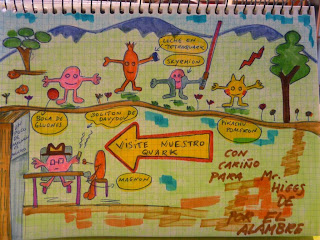 LECHE EN
TETROQUARK
SKYRMION
BOLA DE
GLUONES
SOLITON DE
DAVYDOV
PIKACHU
POMERON
VISITE NUESTRO
QUARK
MAGNON
CON
CARIÑO
PARA Mr.
HIGGS
DE
POR EL
ALAMBRE